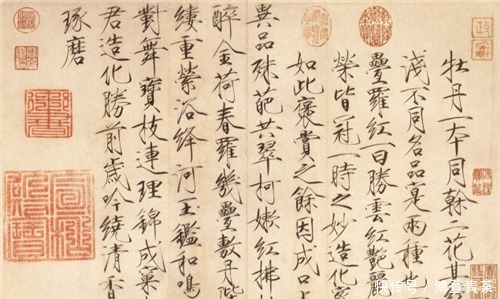 牡丹一本同榦二花其
淺不同名品寔兩種也
疊羅紅一曰勝雲紅艷麗
榮皆冠一時之妙造化密
如此褒貴之餘因成口占
異品殊葩共翠柯嫩紅拂
醉金荷春羅幾疊敷丹陛
縷重縈浴絳河玉鑑和鳴
對舞寶枝連理錦成窠
君造化勝前歲吟繞清香
琢磨
快传号